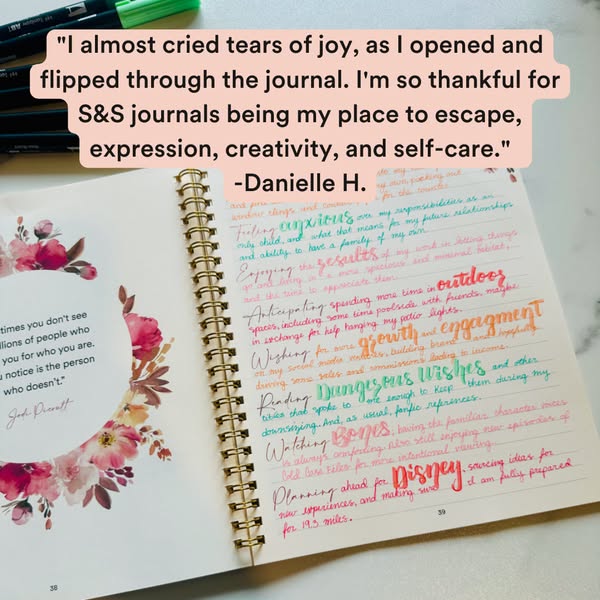 "I almost cried tears of joy, as I opened and
flipped through the journal. I'm so thankful for
S&S journals being my place to escape,
expression, creativity, and self-care."
-Danielle H.
times you don't see
llions of people who
you for who you are.
u notice is the person
who doesn't."
Jodi Picoult
38
window clings, and
for the counter.
Feeling anxious over my responsibilities as an
only child, and what that means for my future relationships
and ability to have a family of my own.
Enjoying the results of my work in letting things
go and living in a more spacious and minimal habitat,
and the time to appreciate them.
Anticipating spending more time in outdoor
spaces, including some time poolside with friends, maybe
in exchange for help hanging my patio lights.
Wishing for more growth and engagment
on my social media metrics, building brand and hopefully
driving some sales and commissions leading to income.
Reading Dangerous Wishes and other
titles that spoke to me enough to keep them during my
downsizing. And, as usual, fanfic references.
Watching Bones, having the familiar character voices
is always comforting. Also still enjoying new episodes of
Cold Case Files for more intentional viewing.
Planning ahead for Disney, sourcing ideas for
new experiences, and making sure I am fully prepared
for 19.3 miles.
39